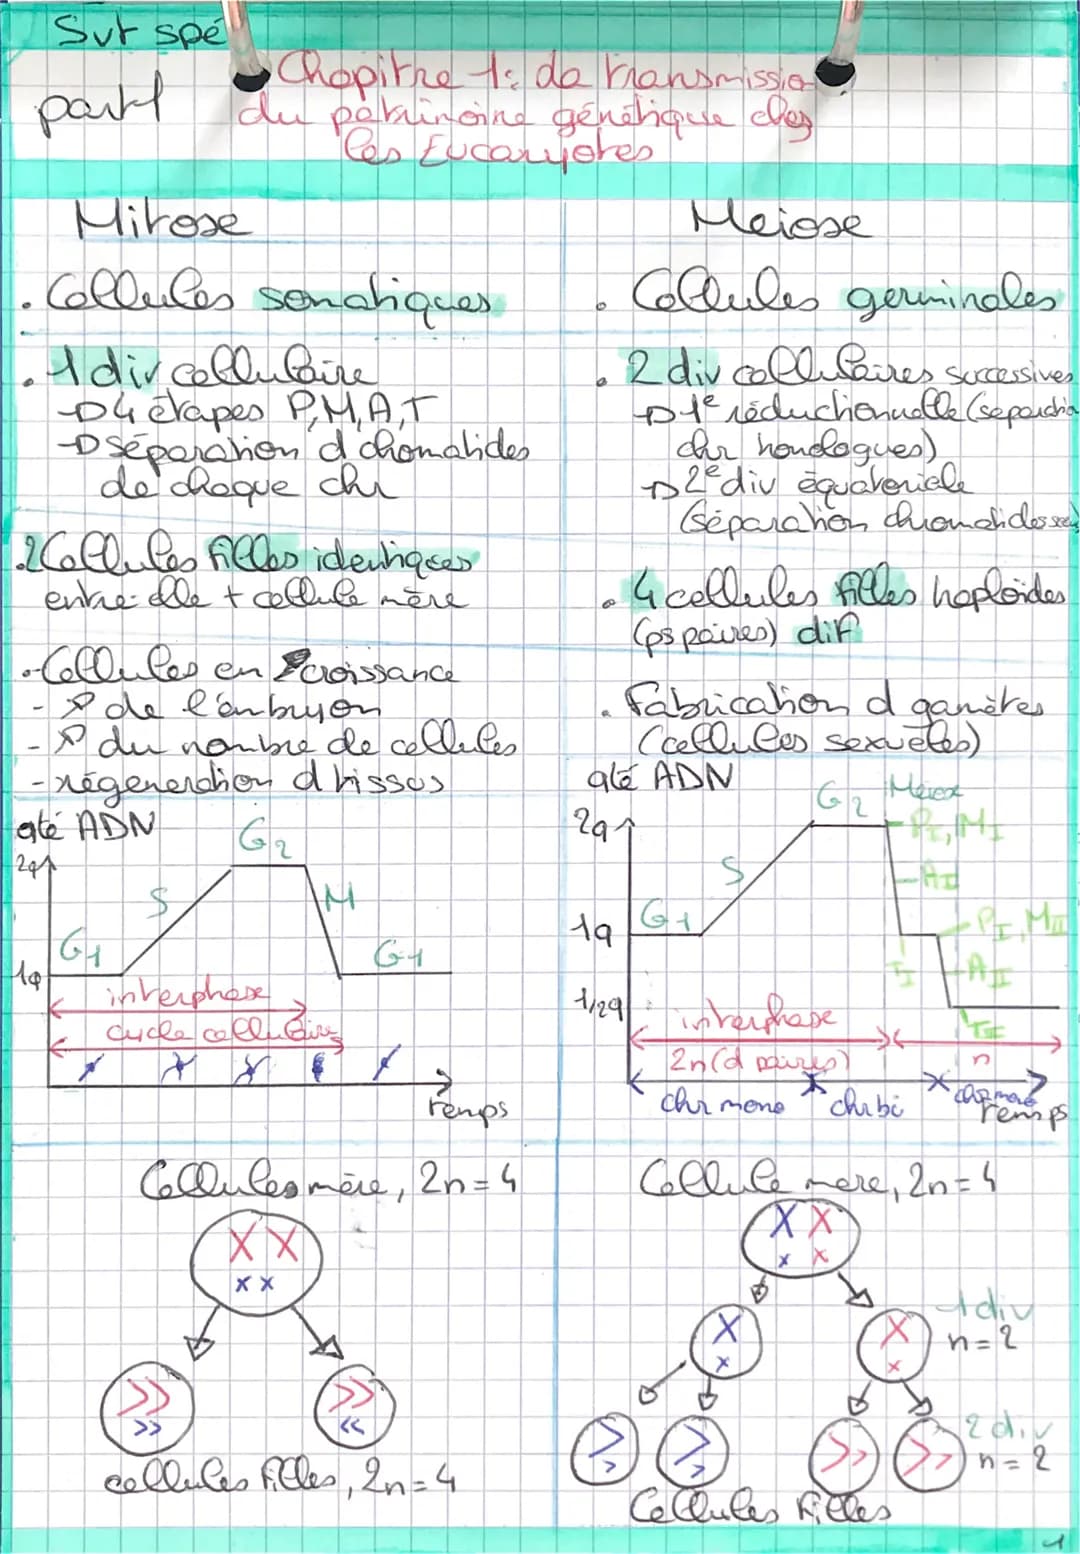 Svt spé
part 1
Chapitre 1: La transmission
du patrimoine génétique chez
les Eucaryotes
Mitose
. Cellules somatiques
. 1 div cellulaire
→ 4 étapes P,M,A,T
→ séparation d chomatides
de chaque chr
.2 Cellules filles identiques
entre elle + cellule mère
. Cellules en croissance
- ↗ de l'embryon
- ↗ du nombre de cellules
- régénération d tissus
qté ADN
2q
G2
S
M
G1
G1
1q
interphase
cycle cellulaire
temps
Cellules mère, 2n=4
cellules filles, 2n=4
Meiose
. Cellules germinales
. 2 div cellulaires successives
→ 1e réductionnelle (séparation
chr homologues)
→ 2e div équatoriale
(séparation chromatides
. 4 cellules filles haploïdes
(ps paires) dif
. Fabrication d gamètes
(cellules sexuelles)
qté ADN
G2
Méiose
2q
PI, MI
S
AI
G1
1q
PI, MII
TI
AII
1/2q
interphase
TII
2n (d paires)
n
chr mono
chr bi
chr mono
temps
Cellule mere, 2n=4
1 div
n=2
2 div
n=2
Cellules filles
1